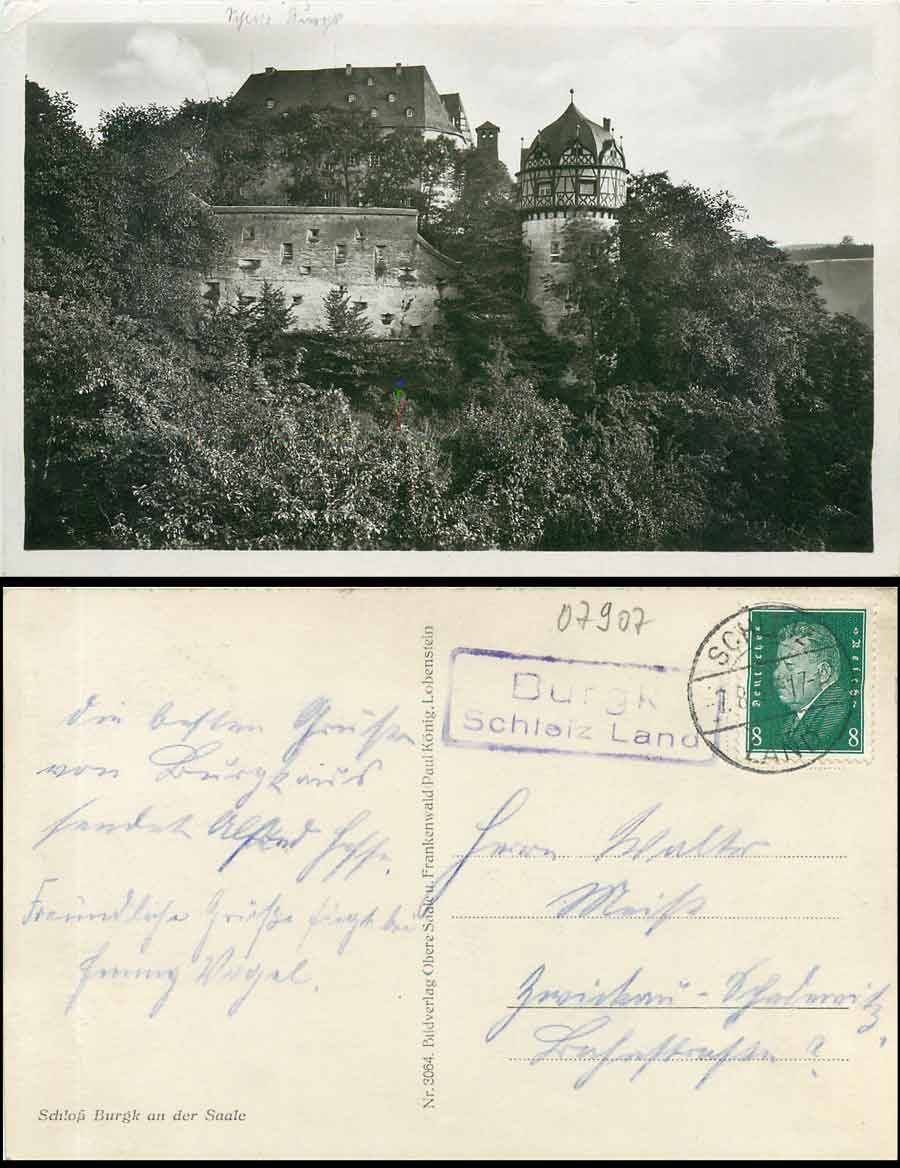 Schloß Burgk
07907
Burgk
Schleiz Land
SCH
1.8. 17-
LAND
Deutsches Reich
8 8
die besten Grüße
von Burgk aus
sendet Alfred
Freundliche Grüße fügt bei
Vogel.
Herrn Walter
Zwickau - Schedewitz,
Bahnstraße ?
Nr. 3064. Bildverlag Obere Saale u. Frankenwald Paul König, Lobenstein
Schloß Burgk an der Saale